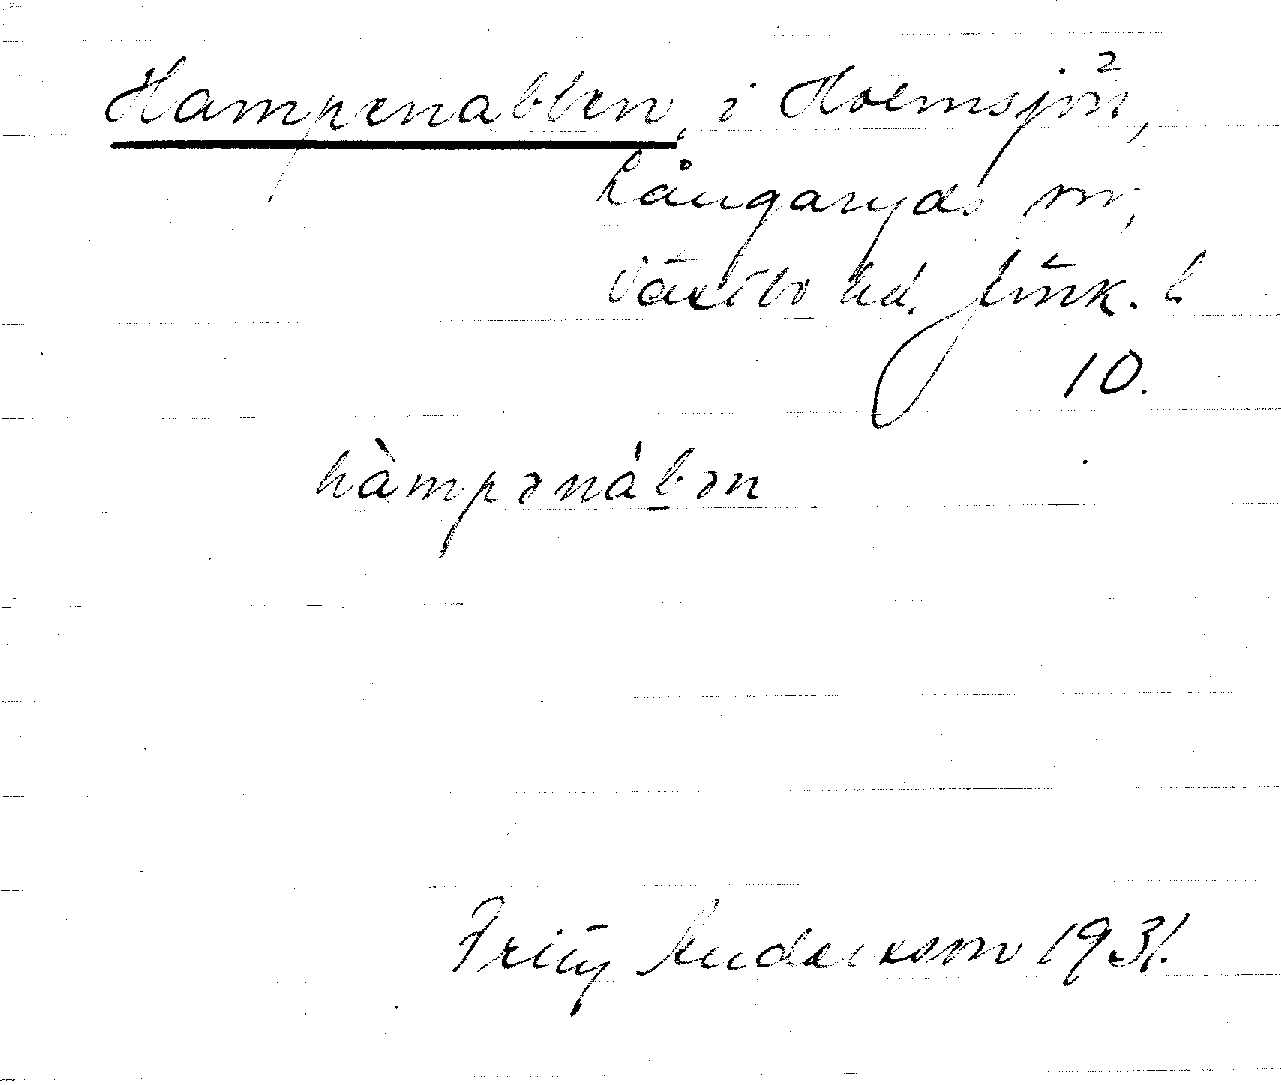 Hampenabben, i Holmsjön,
Långaryds sn,
Västbo hd. Jönk. l.
10.
hàmpənábən
Fritz Andersson 1931.